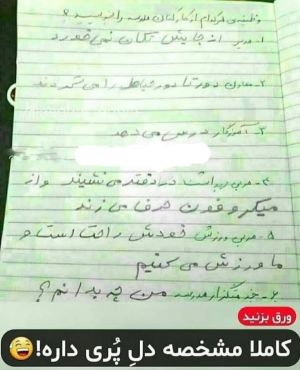 وظیفه‌ی هرکدام از کارکنان مدرسه را بنویسید؟
۱- مدیر از جایش تکان نمی خورد
۲- معاون دور تا دور حیاط را می شمر دند
۳- آموزگار درس می دهد
۴- مربی بهداشت در دفتر می نشیند و از
میکروفون حرف می زند
۵- مربی ورزش خودش راحت است و
ما ورزش می کنیم
۶- خدمتگزار مدرسه من چه بدانم؟
ورق بزنید
کاملا مشخصه دلِ پُری داره!😄